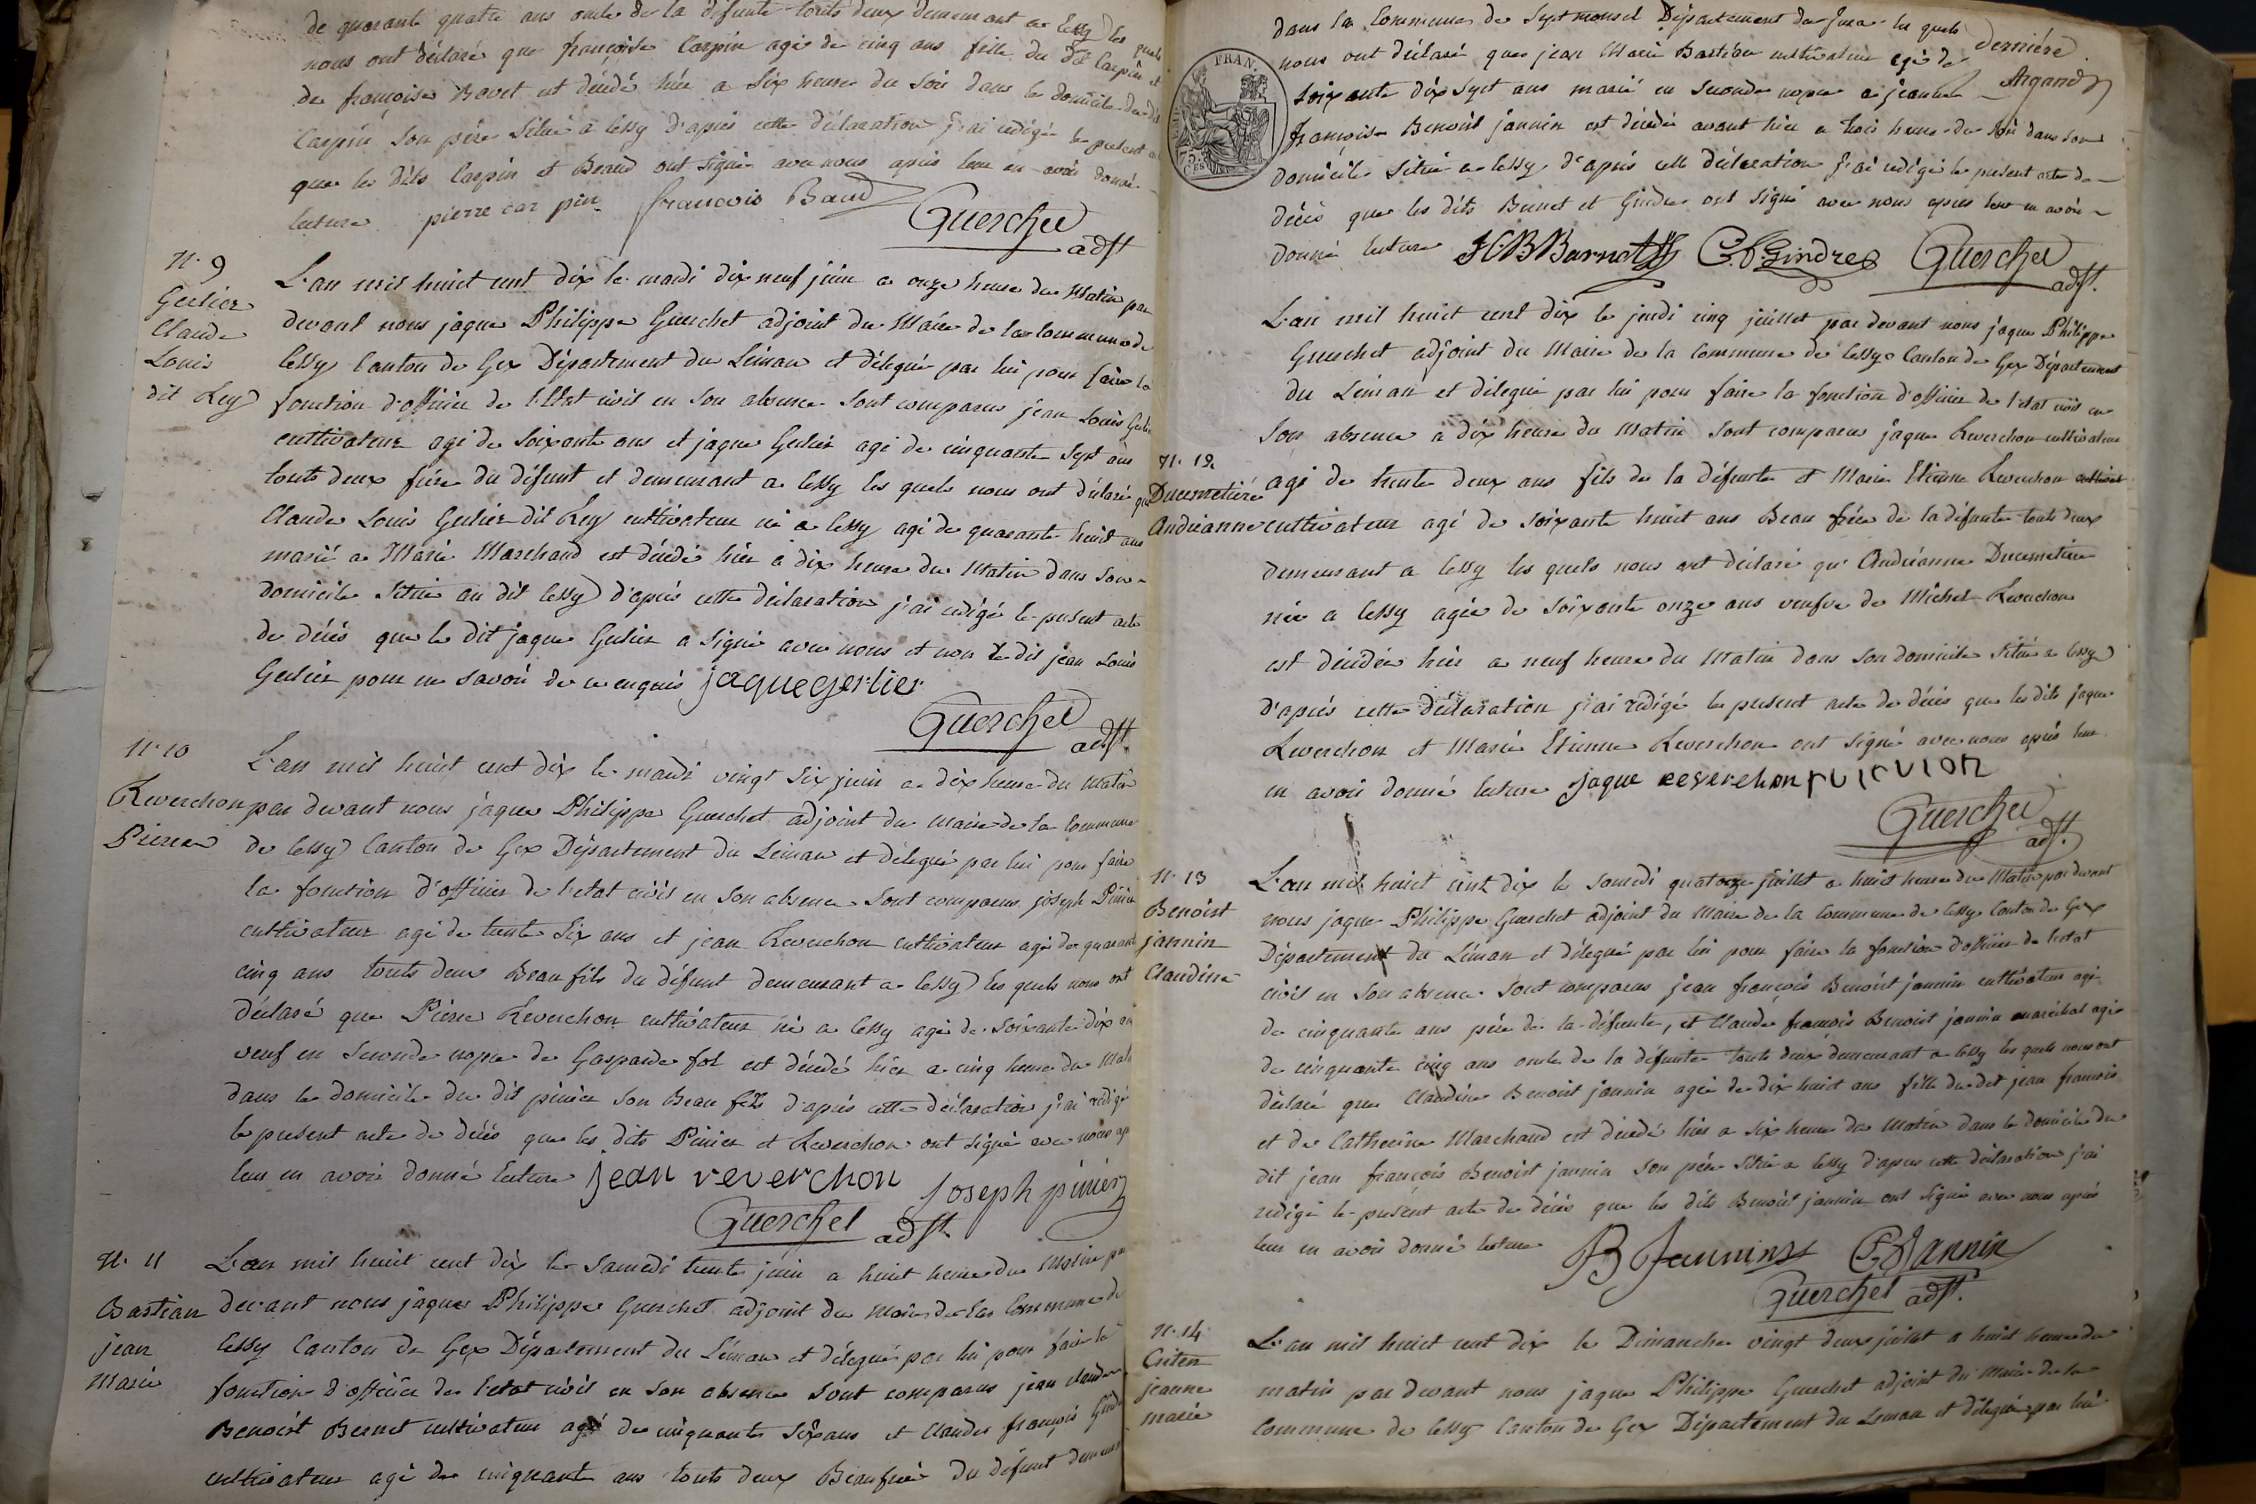 de quarante quatre ans oncle de la défunte touts deux demeurant a Cessy les quels
nous ont déclaré que françoise Carpin agée de cinq ans fille du Dit Carpin et
de françoise Bovet est décédé hier a six heure du soir dans le domicile du dit
Carpin son père situé a Cessy d'après cette déclaration j'ai rédigé le présent
que les dits Carpin et Beaud ont signé avec nous après leur en avoir donné
lecture pierre carpin francois Baud
Guerchet
adjt
N. 9
Gerlier
Claude
Louis
dit Rey
L'an mil huict cent dix le mardi dix neuf juin a onze heure du Matin par
devant nous jaque Philippe Guerchet adjoint du Maire de la commune de
Cessy Canton de Gex Département du Léman et délegué par lui pour faire la
fonction d'officier de l'Etat civil en son absence sont comparus jean Louis Gerlier
cultivateur agé de soixante ans et jaque Gerlier agé de cinquante sept ans
touts deux frère du défunt et demeurant a Cessy les quels nous ont déclaré que
Claude Louis Gerlier dit Rey cultivateur né a Cessy agé de quarante huit ans
marié a Marie Marchand est décédé hier à dix heure du Matin dans son
domicile situé au dit Cessy d'après cette déclaration j'ai rédigé le présent acte
de décès que le dit jaque Gerlier a signé avec nous et non le dit jean Louis
Gerlier pour ne savoir de ce enquis jaque gerlier
Guerchet
adjt.
N. 10
Reverchon
Pierre
L'an mil huict cent dix le mardi vingt six juin a dix heure du Matin
par devant nous jaque Philippe Guerchet adjoint du maire de la Commune
de Cessy Canton de Gex Département du Léman et délegué par lui pour faire
la fonction d'officier de l'etat civil en son absence sont comparus joseph Pinier
cultivateur agé de trente six ans et jean Reverchon cultivateur agé de quarante
cinq ans touts deux Beau fils du défunt demeurant a Cessy les quels nous ont
déclaré que Pierre Reverchon cultivateur né a Cessy agé de soixante dix ans
veuf en seconde nopce de Gasparde fol est décédé hier a cinq heure du Matin
dans le domicile du dit pinier son Beau fils d'après cette déclaration j'ai rédigé
le présent acte de décès que les dits Pinier et Reverchon ont signé avec nous ap
leur en avoir donné lecture jean reverchon joseph pinier
Guerchet adjt
N. 11
Bastian
jean
Marie
L'an mil huict cent dix le samedi trente juin a huict heure du Matin par
devant nous jaque Philippe Guerchet adjoint du Maire de la Commune de
Cessy Canton de Gex Département du Léman et délegué par lui pour faire la
fonction d'officier de l'etat civil en son absence sont comparus jean claude
Benoist Bernet cultivateur agé de cinquante six ans et Claude françois Gindre
cultivateur agé de cinquante ans touts deux Beaufrère du défunt demeurant
FRAN.
dans la Commune de Septmoncel Département du Jura les quels
nous ont déclaré que jean Marie Bastian cultivateur agé de
soixante dix sept ans marié en seconde nopce a jeanne
françoise Benoist jannin est décédé avant hier a trois heure du soir dans son
domicile situé a Cessy d'après cette déclaration j'ai rédigé le présent acte de
décès que les dits Bernet et Gindre ont signé avec nous après leur en avoir
donné lecture
dernière
Argand
C. f. Gindre Guerchet
adjt.
N. 12
Ducimetière
Andréanne
L'an mil huict cent dix le jeudi cinq juillet par devant nous jaque Philippe
Guerchet adjoint du Maire de la Commune de Cessy Canton de Gex Département
du Léman et délegué par lui pour faire la fonction d'officier de l'etat civil en
son absence a dix heure du Matin sont comparus jaque Reverchon cultivateur
agé de trente deux ans fils de la défunte et Marie Etienne Reverchon
cultivateur agé de soixante huict ans Beau frère de la défunte touts deux
demeurant a Cessy les quels nous ont déclaré qu'Andréanne Ducimetière
née a Cessy agée de soixante onze ans veufve de Michel Reverchon
est décédée hier a neuf heure du Matin dans son domicile situé a Cessy
d'après cette déclaration j'ai rédigé le présent acte de décès que les dits jaque
Reverchon et Marie Etienne Reverchon ont signé avec nous après leur
en avoir donné lecture jaque reverchon
Guerchet
adjt.
N. 13
Benoist
jannin
Claudine
L'an mil huict cent dix le samedi quatorze juillet a huict heure du Matin par devant
nous jaque Philippe Guerchet adjoint du Maire de la commune de Cessy Canton de Gex
Département du Léman et délegué par lui pour faire la fonction d'officier de l'etat
civil en son absence sont comparus jean françois Benoist jannin cultivateur agé
de cinquante ans père de la défunte, et Claude françois Benoist jannin maréchal agé
de cinquante cinq ans oncle de la défunte touts deux demeurant a Cessy les quels nous ont
déclaré que Claudine Benoist jannin agée de dix huict ans fille du dit jean francois
et de Catherine Marchand est décédé hier a six heure du Matin dans le domicile du
dit jean françois Benoist jannin son père situé a Cessy d'après cette déclaration j'ai
rédigé le présent acte de décès que les dits Benoist jannin ont signé avec nous après
leur en avoir donné lecture B Jannin C. Jannin
Guerchet adjt.
N. 14
jeanne
marie
L'an mil huict cent dix le Dimanche vingt deux juillet a huict heure du
matin par devant nous jaque Philippe Guerchet adjoint du Maire de la
Commune de Cessy Canton de Gex Département du Léman et délegué par lui